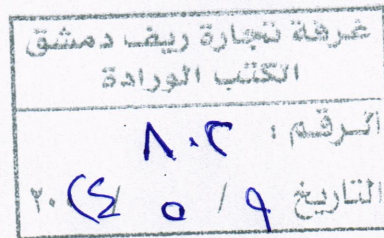 غرفة تجارة ريف دمشق
الكتب الورادة
الرقم : ٨٠٢
التاريخ ٩ / ٥ / ٢٠٢٤